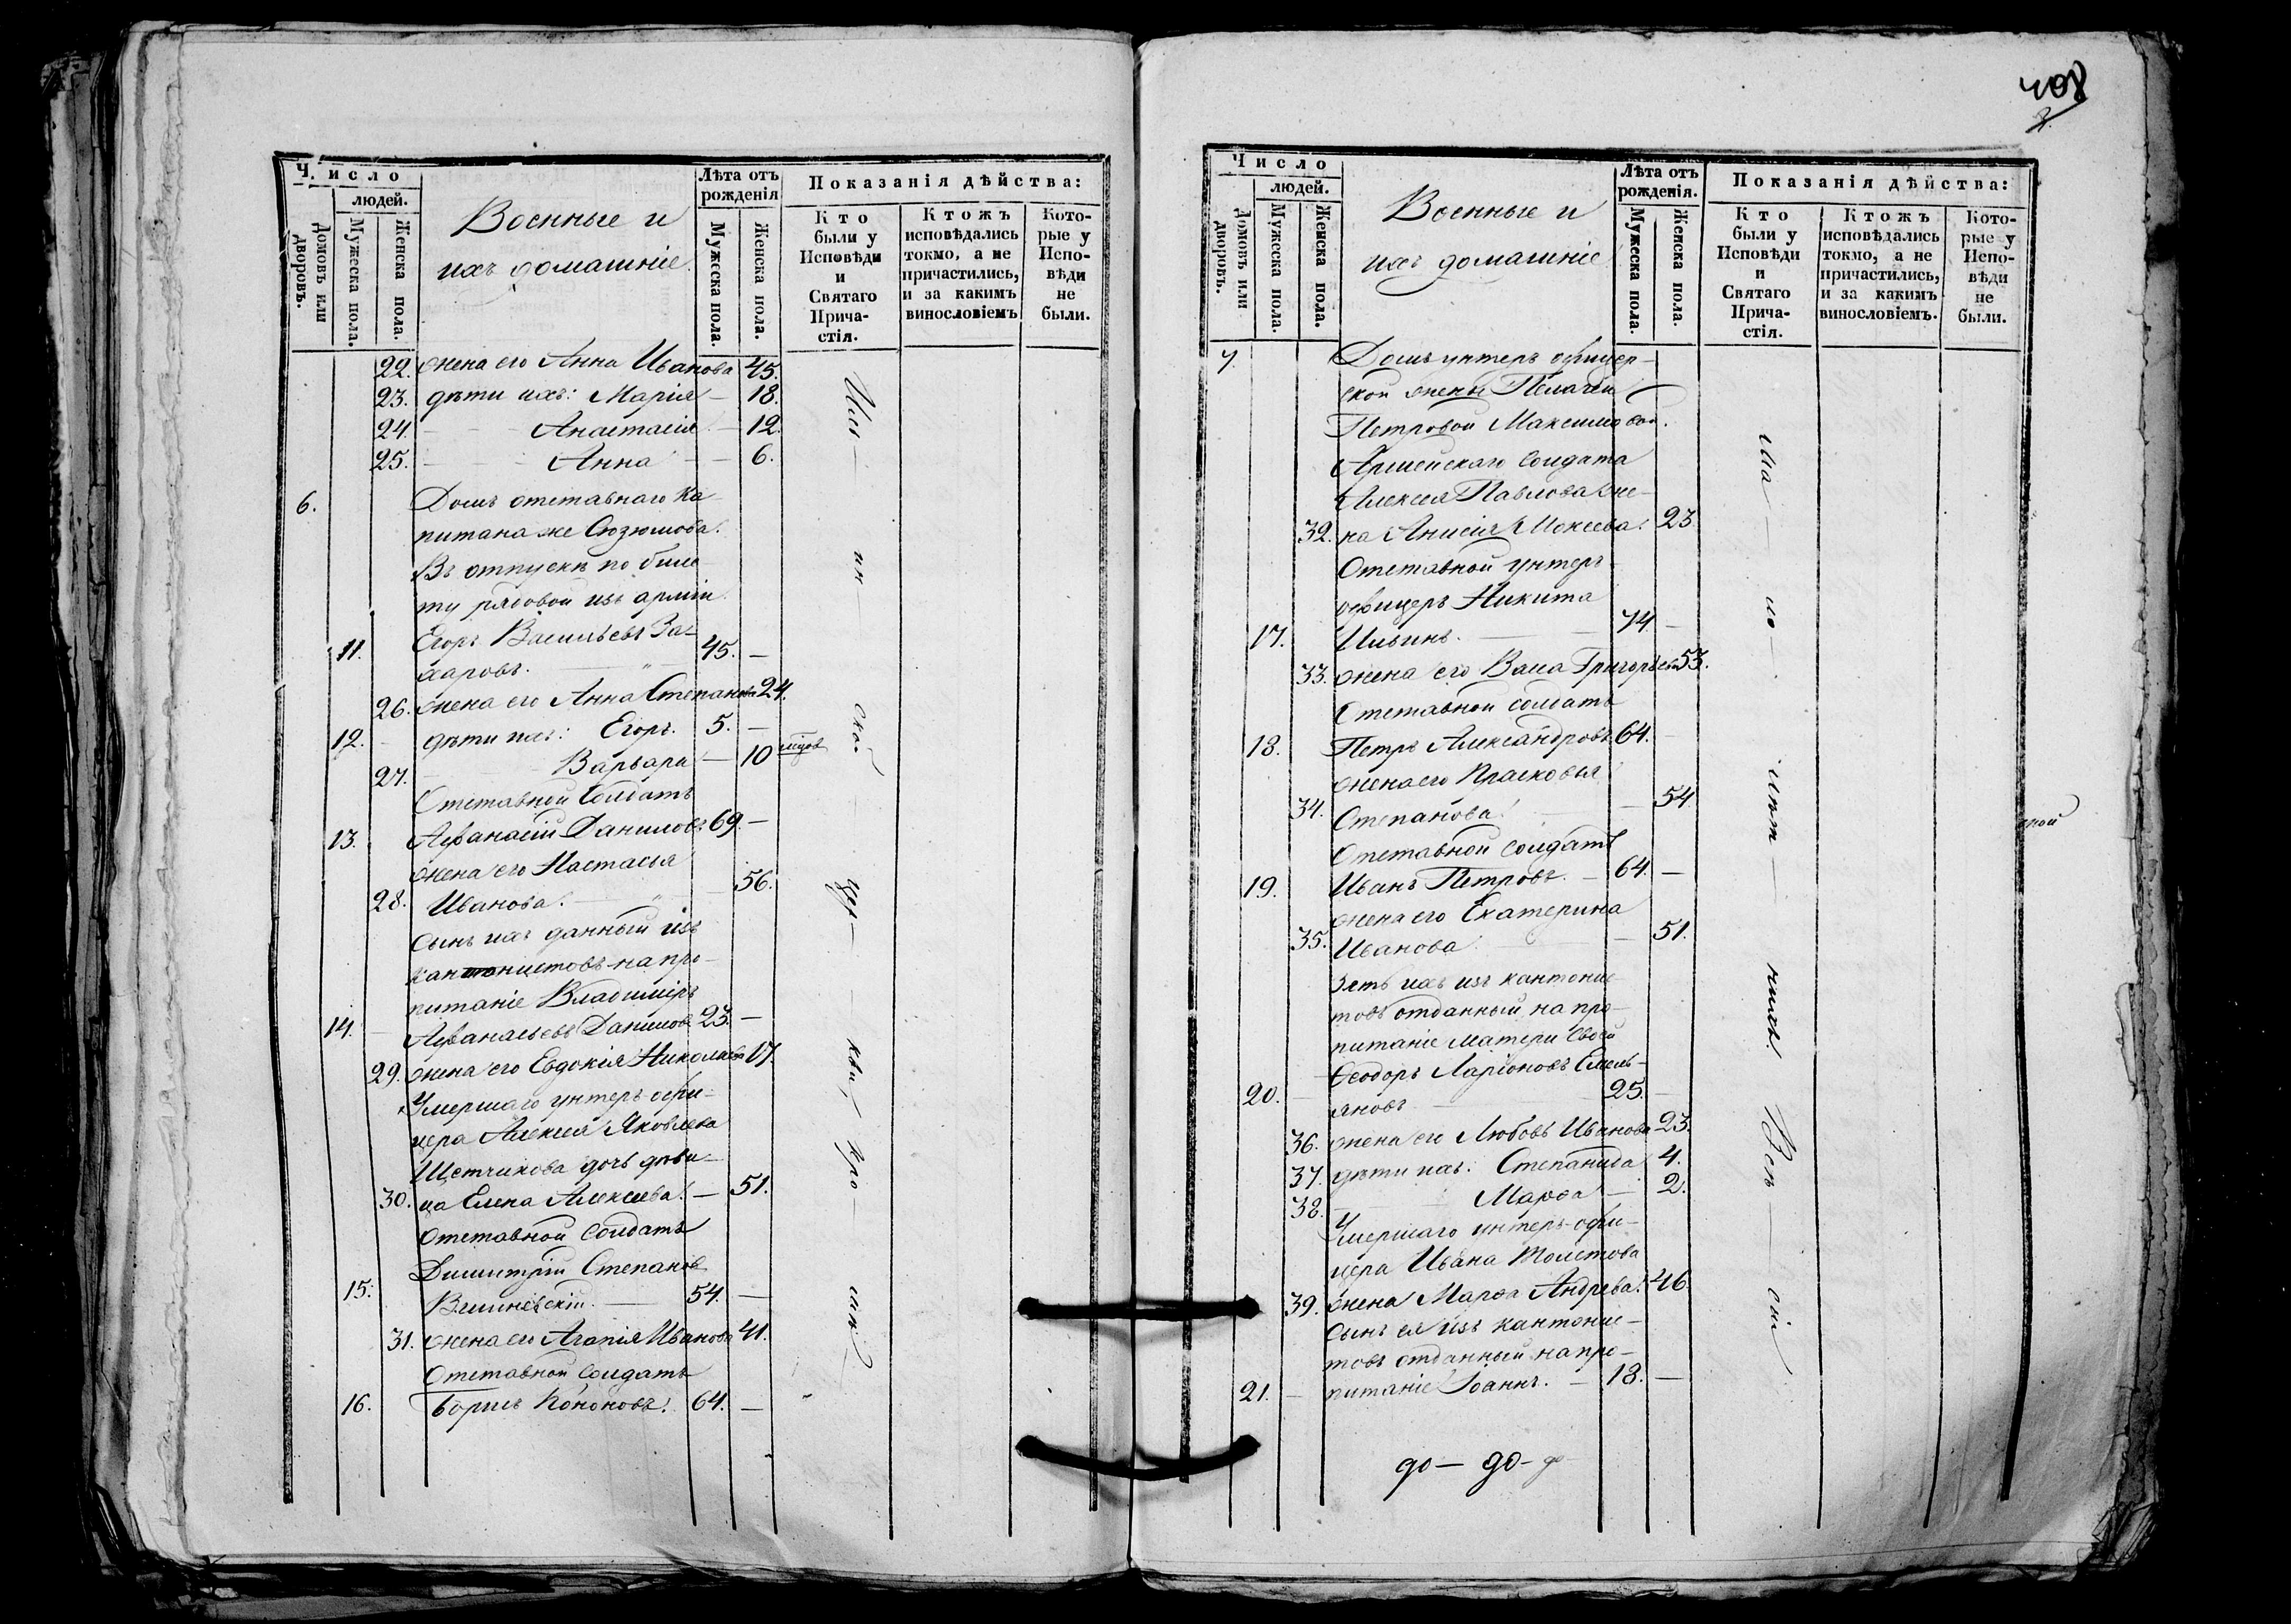 Число
людей.
Домовъ или дворовъ.
Мужеска пола.
Женска пола.
Военные и
ихъ домашніе.
Лѣта отъ
рожденія
Мужеска пола.
Женска пола.
Показанія дѣйства:
Кто
были у
Исповѣди
и
Святаго
Прича-
стія.
Ктожъ
исповѣдались
токмо, а не
причастились,
и за какимъ
винословіемъ
Кото-
рые у
Испо-
вѣди
не
были.
22. жена его Анна Иванова 45.
23. дѣти ихъ: Марія — 18.
24. — Анастасія — 12.
25. — Анна — 6.
6. Домъ отставнаго Ка-
питана же Сюзюмова.
Въ отпускѣ по биле-
ту рядовой изъ арміи
11. Егоръ Васильевъ За-
харовъ. — 45. —
26. жена его Анна Степанова 24.
12. дѣти ихъ: Егоръ. 5. —
27. Варвара — 10 мѣсяц
Отставной Солдатъ
13. Аѳанасій Даниловъ 69. —
жена его Настасья
28. Иванова. — 56.
сынъ ихъ данный изъ
кантонистовъ на про-
питаніе Владиміръ
14. Аѳанасьевъ Даниловъ 23. —
29. жена его Евдокія Николаева 17.
Умершаго унтеръ-офи-
цера Алексея Яковлева
Щетчикова дочь дѣви-
30. ца Елена Алексеева. — 51.
Отставной Солдатъ
Димитрій Степановъ
15. — 54. —
31. жена его Агапія Иванова 41.
Отставной Солдатъ
16. Борисъ Кононовъ. 64. —
408
Число
людей.
Домовъ или дворовъ.
Мужеска пола.
Женска пола.
Военные и
ихъ домашніе
Лѣта отъ
рожденія.
Мужеска пола.
Женска пола.
Показанія дѣйства:
Кто
были у
Исповѣди
и
Святаго
Прича-
стія.
Ктожъ
исповѣдались
токмо, а не
причастились,
и за какимъ
винословіемъ.
Кото-
рые у
Испо-
вѣди
не
были.
7. Домъ унтеръ офицер-
ской жены Пелагеи
Петровой Максимовой.
Армейскаго солдата
Алексея Павлова же-
32. на Анисія Мокеева. 23.
Отставной унтеръ
офицеръ Никита
17. Ильинъ. — 74. —
33. жена его Васа Григорьева 53.
Отставной солдатъ
18. Петръ Александровъ 64. —
жена его Прасковья
34. Степанова. — 54
Отставной солдатъ
19. Иванъ Петровъ. — 64. —
жена его Екатерина
35. Иванова. — 51.
Зять ихъ изъ кантонис-
товъ отданный на про-
питаніе матери своей
Ѳеодоръ Ларіоновъ Емель-
20. яновъ — 25. —
36. жена его Любовь Иванова 23.
37. дѣти ихъ: Степанида 4.
38. Марѳа — 2.
Умершаго унтеръ-офи-
цера Ивана Толстова
39. жена Марѳа Андреева. 46
сынъ ея изъ кантонис-
товъ отданный на про-
21. — питаніе Іоаннъ. — 18. —